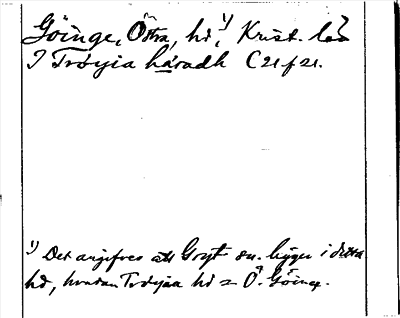 Göinge, Östra, hd, 1) Krist. län
I Trøyia háradh C 21 f 21.
1) Det angifves att Gryt sn. ligger i detta
hd, hvadan Trøyia hd = Ö. Göinge.